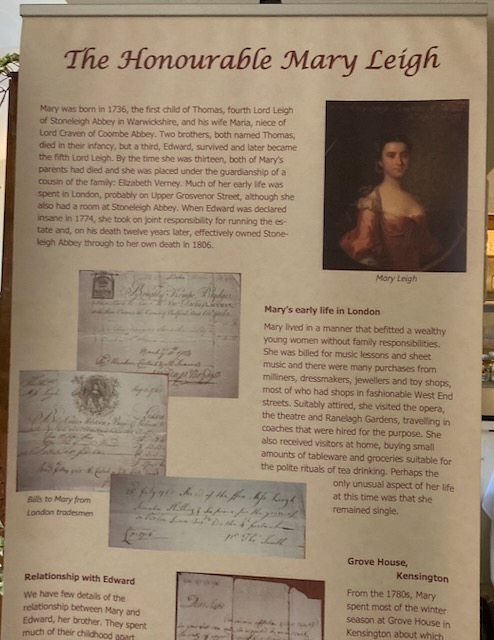 The Honourable Mary Leigh
Mary was born in 1736, the first child of Thomas, fourth Lord Leigh
of Stoneleigh Abbey in Warwickshire, and his wife Maria, niece of
Lord Craven of Coombe Abbey. Two brothers, both named Thomas,
died in their infancy, but a third, Edward, survived and later became
the fifth Lord Leigh. By the time she was thirteen, both of Mary's
parents had died and she was placed under the guardianship of a
cousin of the family: Elizabeth Verney. Much of her early life was
spent in London, probably on Upper Grosvenor Street, although she
also had a room at Stoneleigh Abbey. When Edward was declared
insane in 1774, she took on joint responsibility for running the es-
tate and, on his death twelve years later, effectively owned Stone-
leigh Abbey through to her own death in 1806.
Mary Leigh
Mary's early life in London
Mary lived in a manner that befitted a wealthy
young women without family responsibilities.
She was billed for music lessons and sheet
music and there were many purchases from
milliners, dressmakers, jewellers and toy shops,
most of who had shops in fashionable West End
streets. Suitably attired, she visited the opera,
the theatre and Ranelagh Gardens, travelling in
coaches that were hired for the purpose. She
also received visitors at home, buying small
amounts of tableware and groceries suitable for
the polite rituals of tea drinking. Perhaps the
only unusual aspect of her life
at this time was that she
remained single.
Bills to Mary from
London tradesmen
Relationship with Edward
We have few details of the
relationship between Mary and
Edward, her brother. They spent
much of their childhood apart
Grove House,
Kensington
From the 1780s, Mary
spent most of the winter
season at Grove House in
Kensington about which